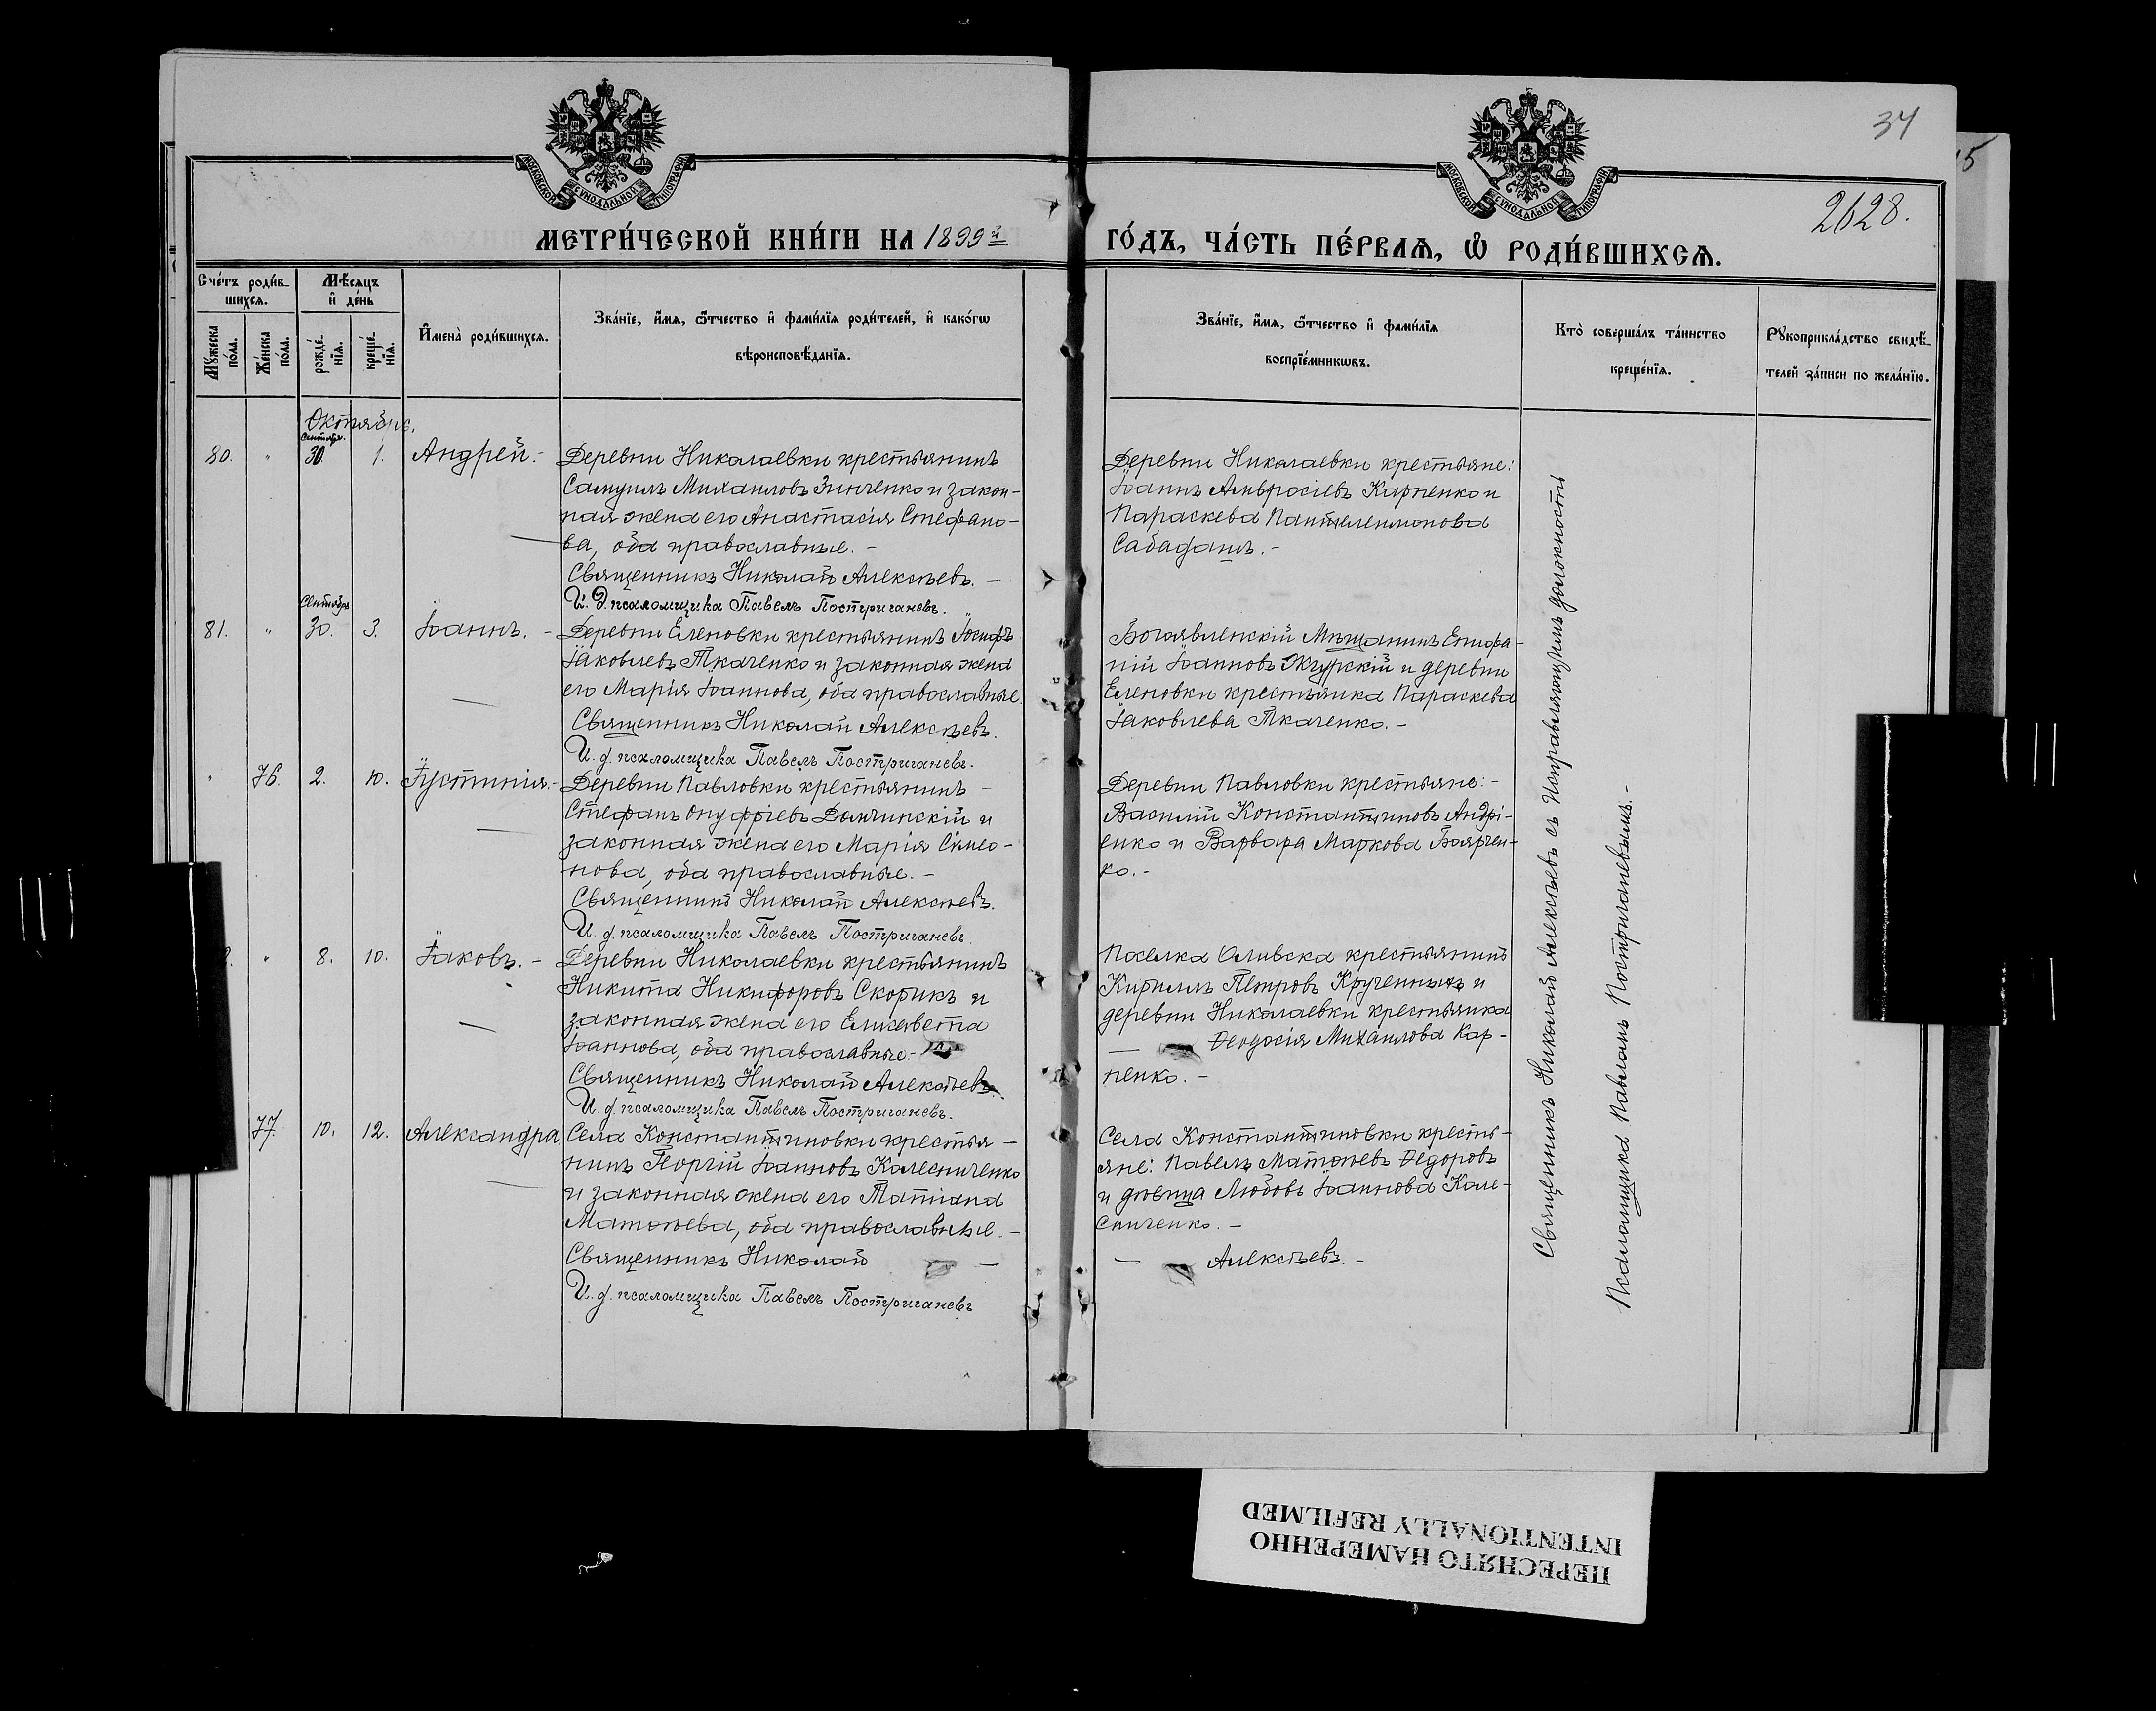 34
15
2628.
МОСКОВСКОЙ СѴНОДАЛЬНОЙ ТИПОГРАФІИ
МОСКОВСКОЙ СѴНОДАЛЬНОЙ ТИПОГРАФІИ
МЕТРИ́ЧЕСКОЙ КНИ́ГИ НА 1899й ГО́ДЪ, ЧА́СТЬ ПЕ́РВАѦ, Ѡ РОДИ́ВШИХСѦ.
Сче́тъ роди́в-
шихсѧ.
Мѣ́сѧцъ
и҆ де́нь
Мꙋ́жеска по́ла.
Же́нска по́ла.
рожде́-
нїѧ.
креще́-
нїѧ.
И҆мена̀ роди́вшихсѧ.
Зва́нїе, и҆́мѧ, ѻ҆́тчество и҆ фами́лїѧ роди́телей, и҆ како́гѡ
вѣроисповѣ́данїѧ.
Зва́нїе, и҆́мѧ, ѻ҆́тчество и҆ фами́лїѧ
воспрїе́мникѡвъ.
Кто̀ соверша́лъ та́инство
креще́нїѧ.
Рꙋкоприкла́дство свидѣ́-
телей за́писи по жела́нїю.
Октябрь.
Сентябр.
80. " 30. 1. Андрей.-
Деревни Николаевки крестьянинъ
Самуилъ Михаиловъ Зинченко и закон-
ная жена его Анастасія Стефано-
ва, оба православные.-
Священникъ Николай Алексѣевъ.-
И. д. псаломщика Павелъ Постриганевъ.
Деревни Николаевки крестьяне:
Іоаннъ Амвросіевъ Карпенко и
Параскева Пантелеимонова
Сабадашъ.-
Сентябрь
81. " 30. 3. Іоаннъ.-
Деревни Еленовки крестьянинъ Іосифъ
Іаковлевъ Ткаченко и законная жена
его Марія Іоаннова, оба православные
Священникъ Николай Алексѣевъ.
И. д. псаломщика Павелъ Постриганевъ.
Богоявленскій Мѣщанинъ Епифа-
ній Іоанновъ и деревни
Еленовки крестьянка Параскева
Іаковлева Ткаченко.-
" 76. 2. 10. Іустинія.-
Деревни Павловки крестьянинъ -
Стефанъ Онуфріевъ и
законная жена его Марія Симео-
нова, оба православные.-
Священникъ Николай Алексѣевъ.
И. д. псаломщика Павелъ Постриганевъ.
Деревни Павловки крестьяне:-
Василій Константиновъ Андрі-
енко и Варвара Маркова Боярчен-
ко.-
" 8. 10. Іаковъ.-
Деревни Николаевки крестьянинъ
Никита Никифоровъ Скорикъ и
законная жена его Елисавета
Іоаннова, оба православные.-
Священникъ Николай Алексѣевъ.
И. д. псаломщика Павелъ Постриганевъ.
Поселка крестьянинъ
Кириллъ Петровъ Крученныхъ и
деревни Николаевки крестьянка
Ѳеодосія Михаилова Кар-
пенко.-
77. 10. 12. Александра
Села Константиновки крестья-
нинъ Георгій Іоанновъ Калесниченко
и законная жена его Татіана
Матѳеева, оба православные.-
Священникъ Николай
И. д. псаломщика Павелъ Постриганевъ
Села Константиновки кресть-
яне: Павелъ Матѳеевъ Ѳедоровъ
и дѣвица Любовь Іоаннова Кале-
сниченко.-
Алексѣевъ.-
Священникъ Николай Алексѣевъ съ Исправляющимъ должность
Псаломщика Павломъ Постриганевымъ.-
ПЕРЕСНЯТО НАМЕРЕННО
INTENTIONALLY REFILMED